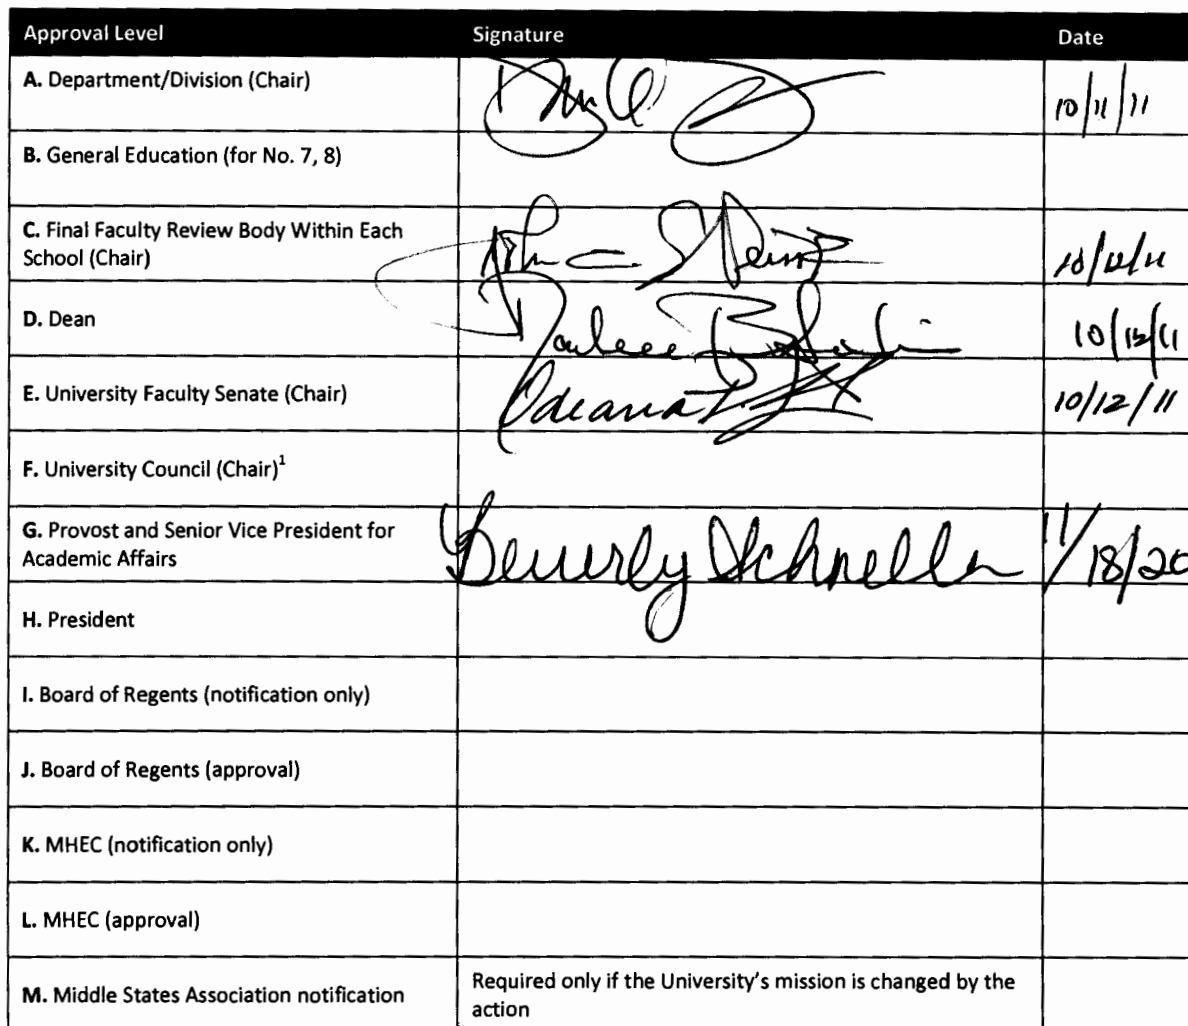 Approval Level Signature Date
A. Department/Division (Chair) 10/11/11
B. General Education (for No. 7, 8)
C. Final Faculty Review Body Within Each
School (Chair)
D. Dean
E. University Faculty Senate (Chair) 10/12/11
F. University Council (Chair)¹
G. Provost and Senior Vice President for
Academic Affairs Beverly Schnella 11/18/20
H. President
I. Board of Regents (notification only)
J. Board of Regents (approval)
K. MHEC (notification only)
L. MHEC (approval)
M. Middle States Association notification Required only if the University's mission is changed by the
action